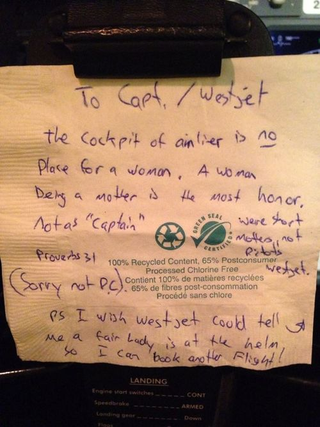 To Capt. / Westjet
the cockpit of airliner is no
Place for a woman. A woman
being a mother is the most honor.
Not as "Captain"
were short
mothers, not
Pilots
westjet.
Proverbs 31
(Sorry not P.C.)
GREEN SEAL
CERTIFIED
100% Recycled Content, 65% Postconsumer
Processed Chlorine Free
Contient 100% de matières recyclées
65% de fibres post-consommation
Procédé sans chlore
PS I wish Westjet could tell
me a fair lady is at the helm
so I can book another Flight!
LANDING
Engine start switches CONT
Speedbrake ARMED
Landing gear Down